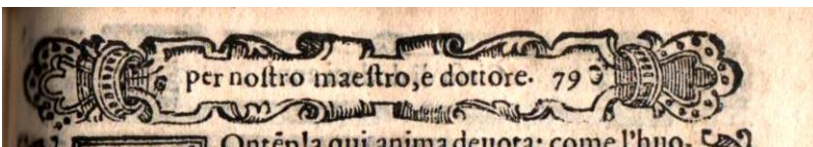 per noſtro maeſtro,e dottore. 79
Ontẽpla qui anima deuota: come l'huo,